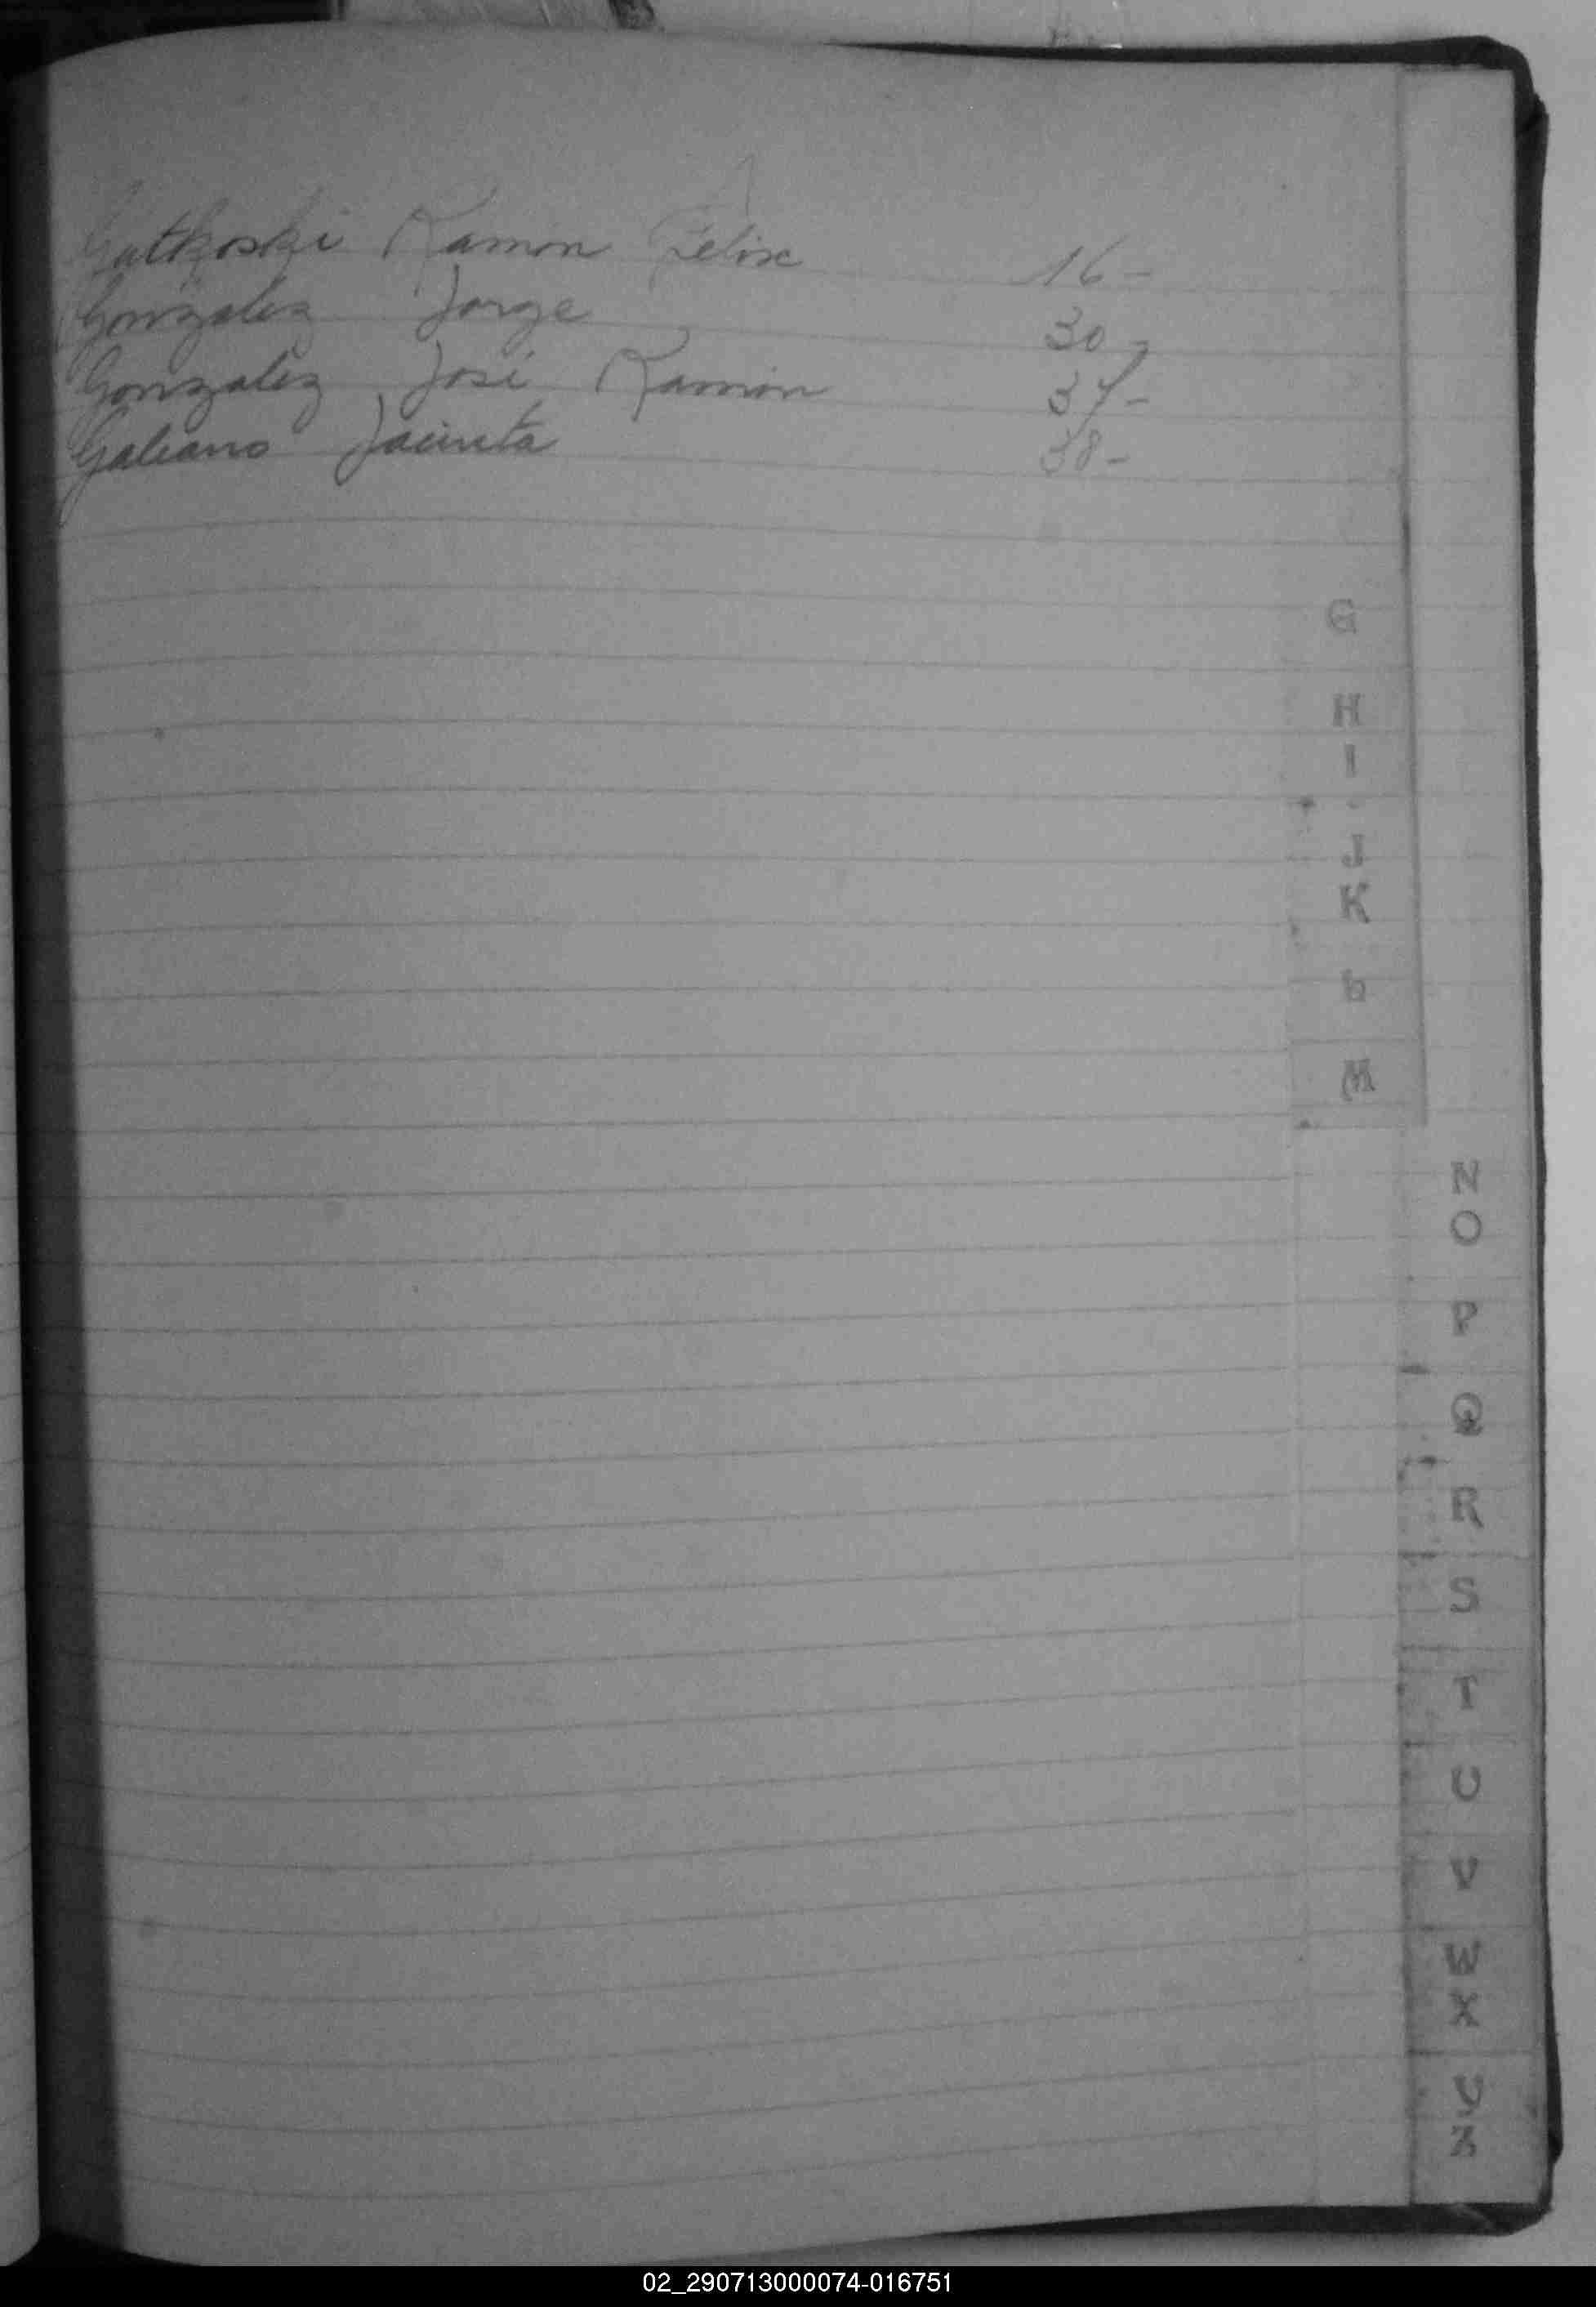 Gutkoski Ramon Felix 16-
Gonzalez Jorge 30-
Gonzalez José Ramón 37-
Galeano Jacinta 38-
G
H
I
J
K
L
M
N
O
P
Q
R
S
T
U
V
W
X
Y
Z
02_290713000074-016751